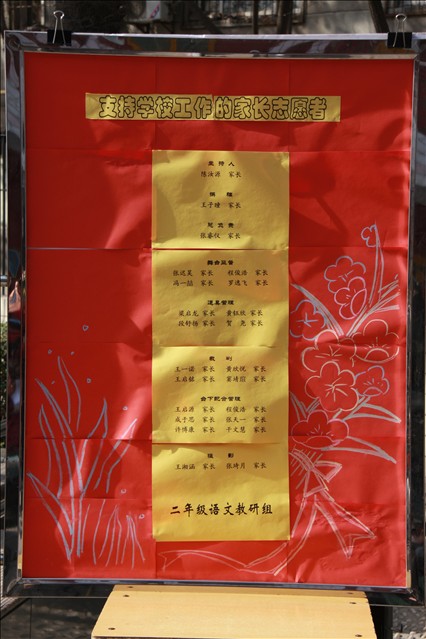 支持学校工作的家长志愿者
主持人
陈汝源 家长
王子瞳 家长
张睿仪 家长
舞台监督
张迟昊 家长 程俊浩 家长
冯一喆 家长 罗逸飞 家长
道具管理
梁启龙 家长 黄钰欣 家长
段舒扬 家长 贺尧 家长
裁判
王一诺 家长 黄欣悦 家长
王启航 家长 家长
台下纪台管理
王启源 家长 程俊浩 家长
成于思 家长 张天一 家长
许博康 家长 于文慧 家长
摄影
王湘涵 家长 张琦月 家长
二年级语文教研组